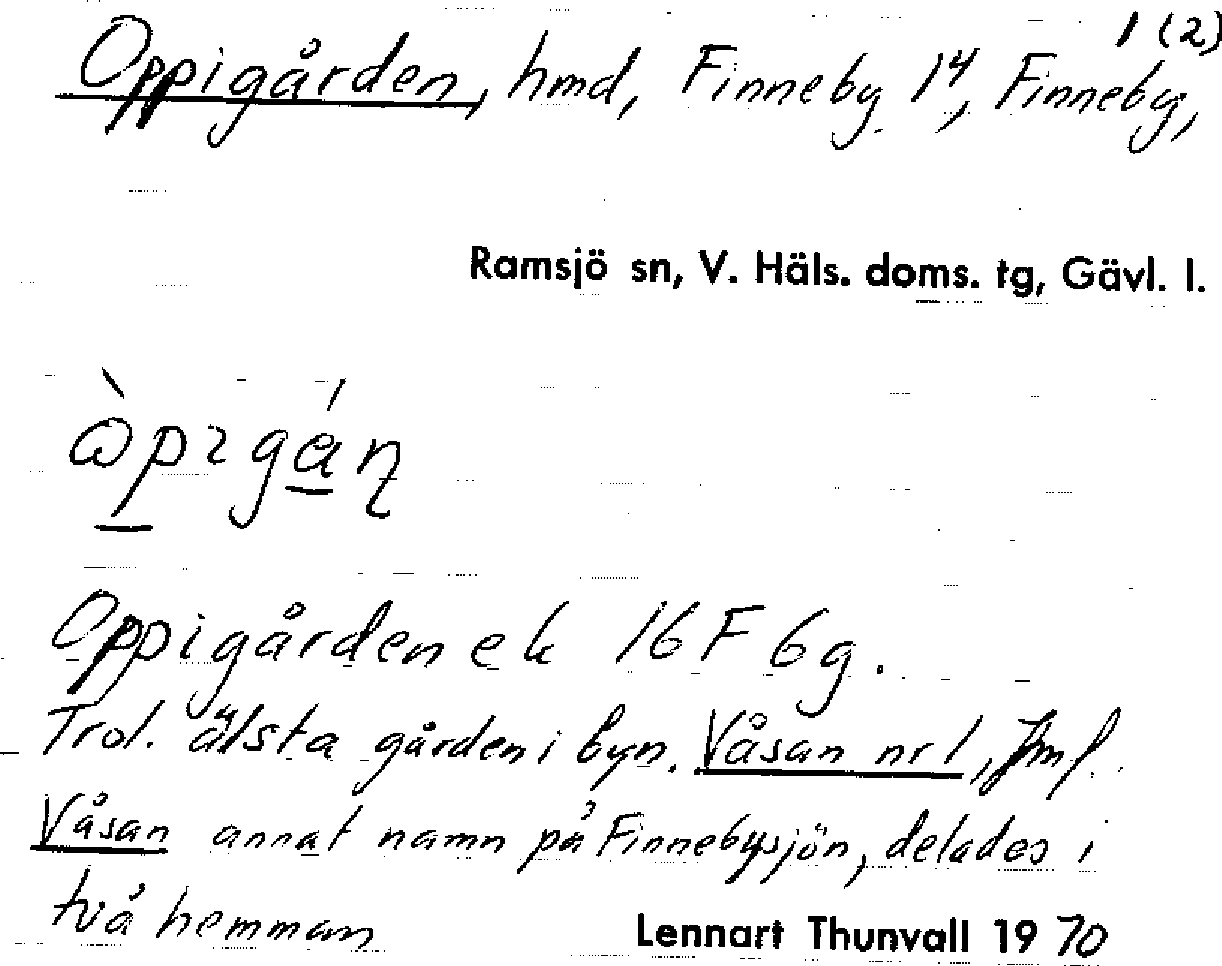 1 (2)
Oppigården, hmd, Finneby 1⁴, Finneby,
Ramsjö sn, V. Häls. doms. tg, Gävl. l.
Oppigården ek 16 F 6g.
Trol. älsta gården i byn. Våsan nr 1, Jmf.
Våsan annat namn på Finnebysjön, delades i
två hemman
Lennart Thunvall 1970